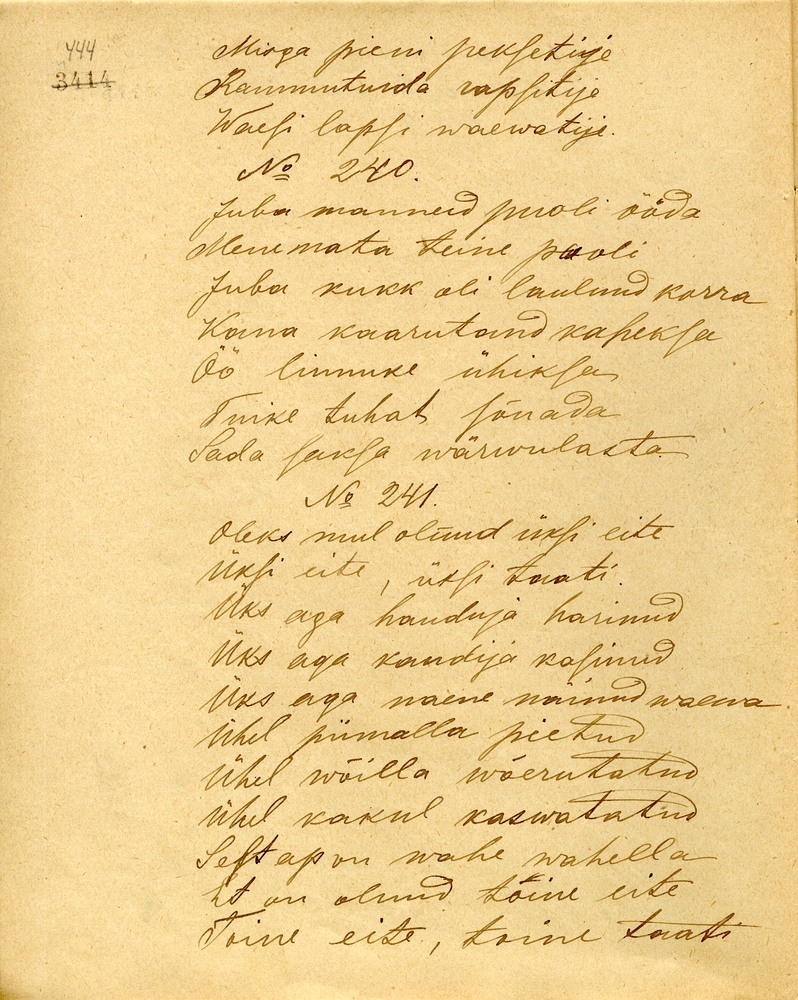 444
3414
Misga pieni peksetije
Rammutuida rapsitije
Waesi lapsi waewatije.
No 240.
Juba manneid puoli ööda
Menemata teine puoli
Juba kukk oli laulnud korra
Kana kaarutand kaheksa
Öö linnuke ühiksa
Tuike tuhat sõnada
Sada saksa wärwulasta
No 241.
Oleks mul olnud üksi eite
Üksi eite, üksi taati.
Üks aga hauduja harinud
Üks aga kandija kasinud
Üks aga naene näinud waewa
Ühel piimalla pietud
Ühel wõilla wõerutatud
Ühel kakul kaswatatud
Sest ap on wahe wahella
Et on olnud tõine eite
Toine eite, toine taati